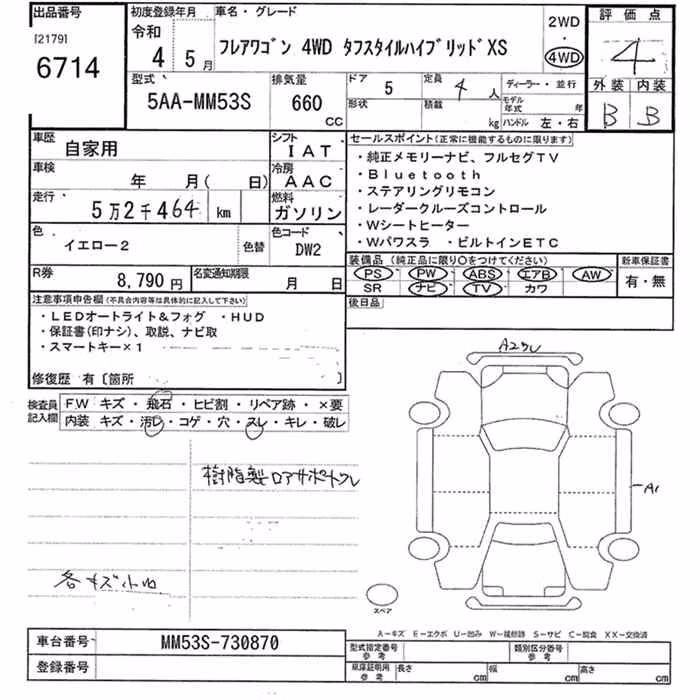 出品番号 初度登録年月 車名・グレード 2WD 評価点
[2179] 令和 ・
6714 4 5月 フレアワゴン 4WD タフスタイルハイブリッドXS 4WD 4
型式 排気量 ドア 5 定員 4人 ディーラー・並行 外装 内装
5AA-MM53S 660 CC 形状 積載 kg モデル年式 年 B B
ハンドル 左・右
車歴 自家用 シフト IAT セールスポイント(正常に機能するものに限ります)
車検 年 月( 日) 冷房 AAC ・純正メモリーナビ、フルセグTV
・Bluetooth
走行 5万2千464 km 燃料 ガソリン ・ステアリングリモコン
・レーダークルーズコントロール
色 イエロー2 色替 色コード DW2 ・Wシートヒーター
・Wパワスラ ・ビルトインETC
R券 8,790円 名変通知期限 月 日 装備品(純正品に限り○をつけてください) 新車保証書
PS PW ABS エアB AW 有・無
SR ナビ TV カワ
注意事項申告欄(不具合内容等は具体的に記入して下さい) 後日品
・LEDオートライト&フォグ ・HUD
・保証書(印ナシ)、取説、ナビ取
・スマートキー×1
修復歴 有〔箇所 〕
検査員記入欄 FW キズ・飛石・ヒビ割・リペア跡・×要
内装 キズ・汚レ・コゲ・穴・スレ・キレ・破レ
A2ワレ
樹脂製ロアサポートワレ
A1
各キズ小凹
スペア
A-キズ E-エクボ U-凹み W-補修跡 S-サビ C-腐食 XX-交換済
車台番号 MM53S-730870 型式指定番号 参考 類別区分番号 参考
登録番号 車庫証明用 参考 長さ cm 幅 cm 高さ cm